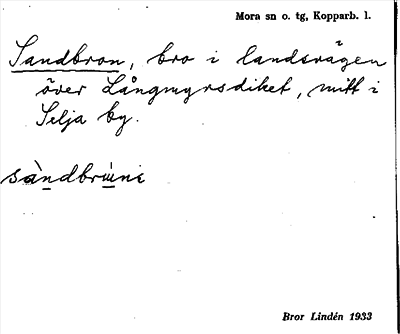 Mora sn o. tg, Kopparb. l.
Sandbron, bro i landsvägen
över Långmyrsdiket, mitt i
Selja by.
sàndbrúne
Bror Lindén 1933